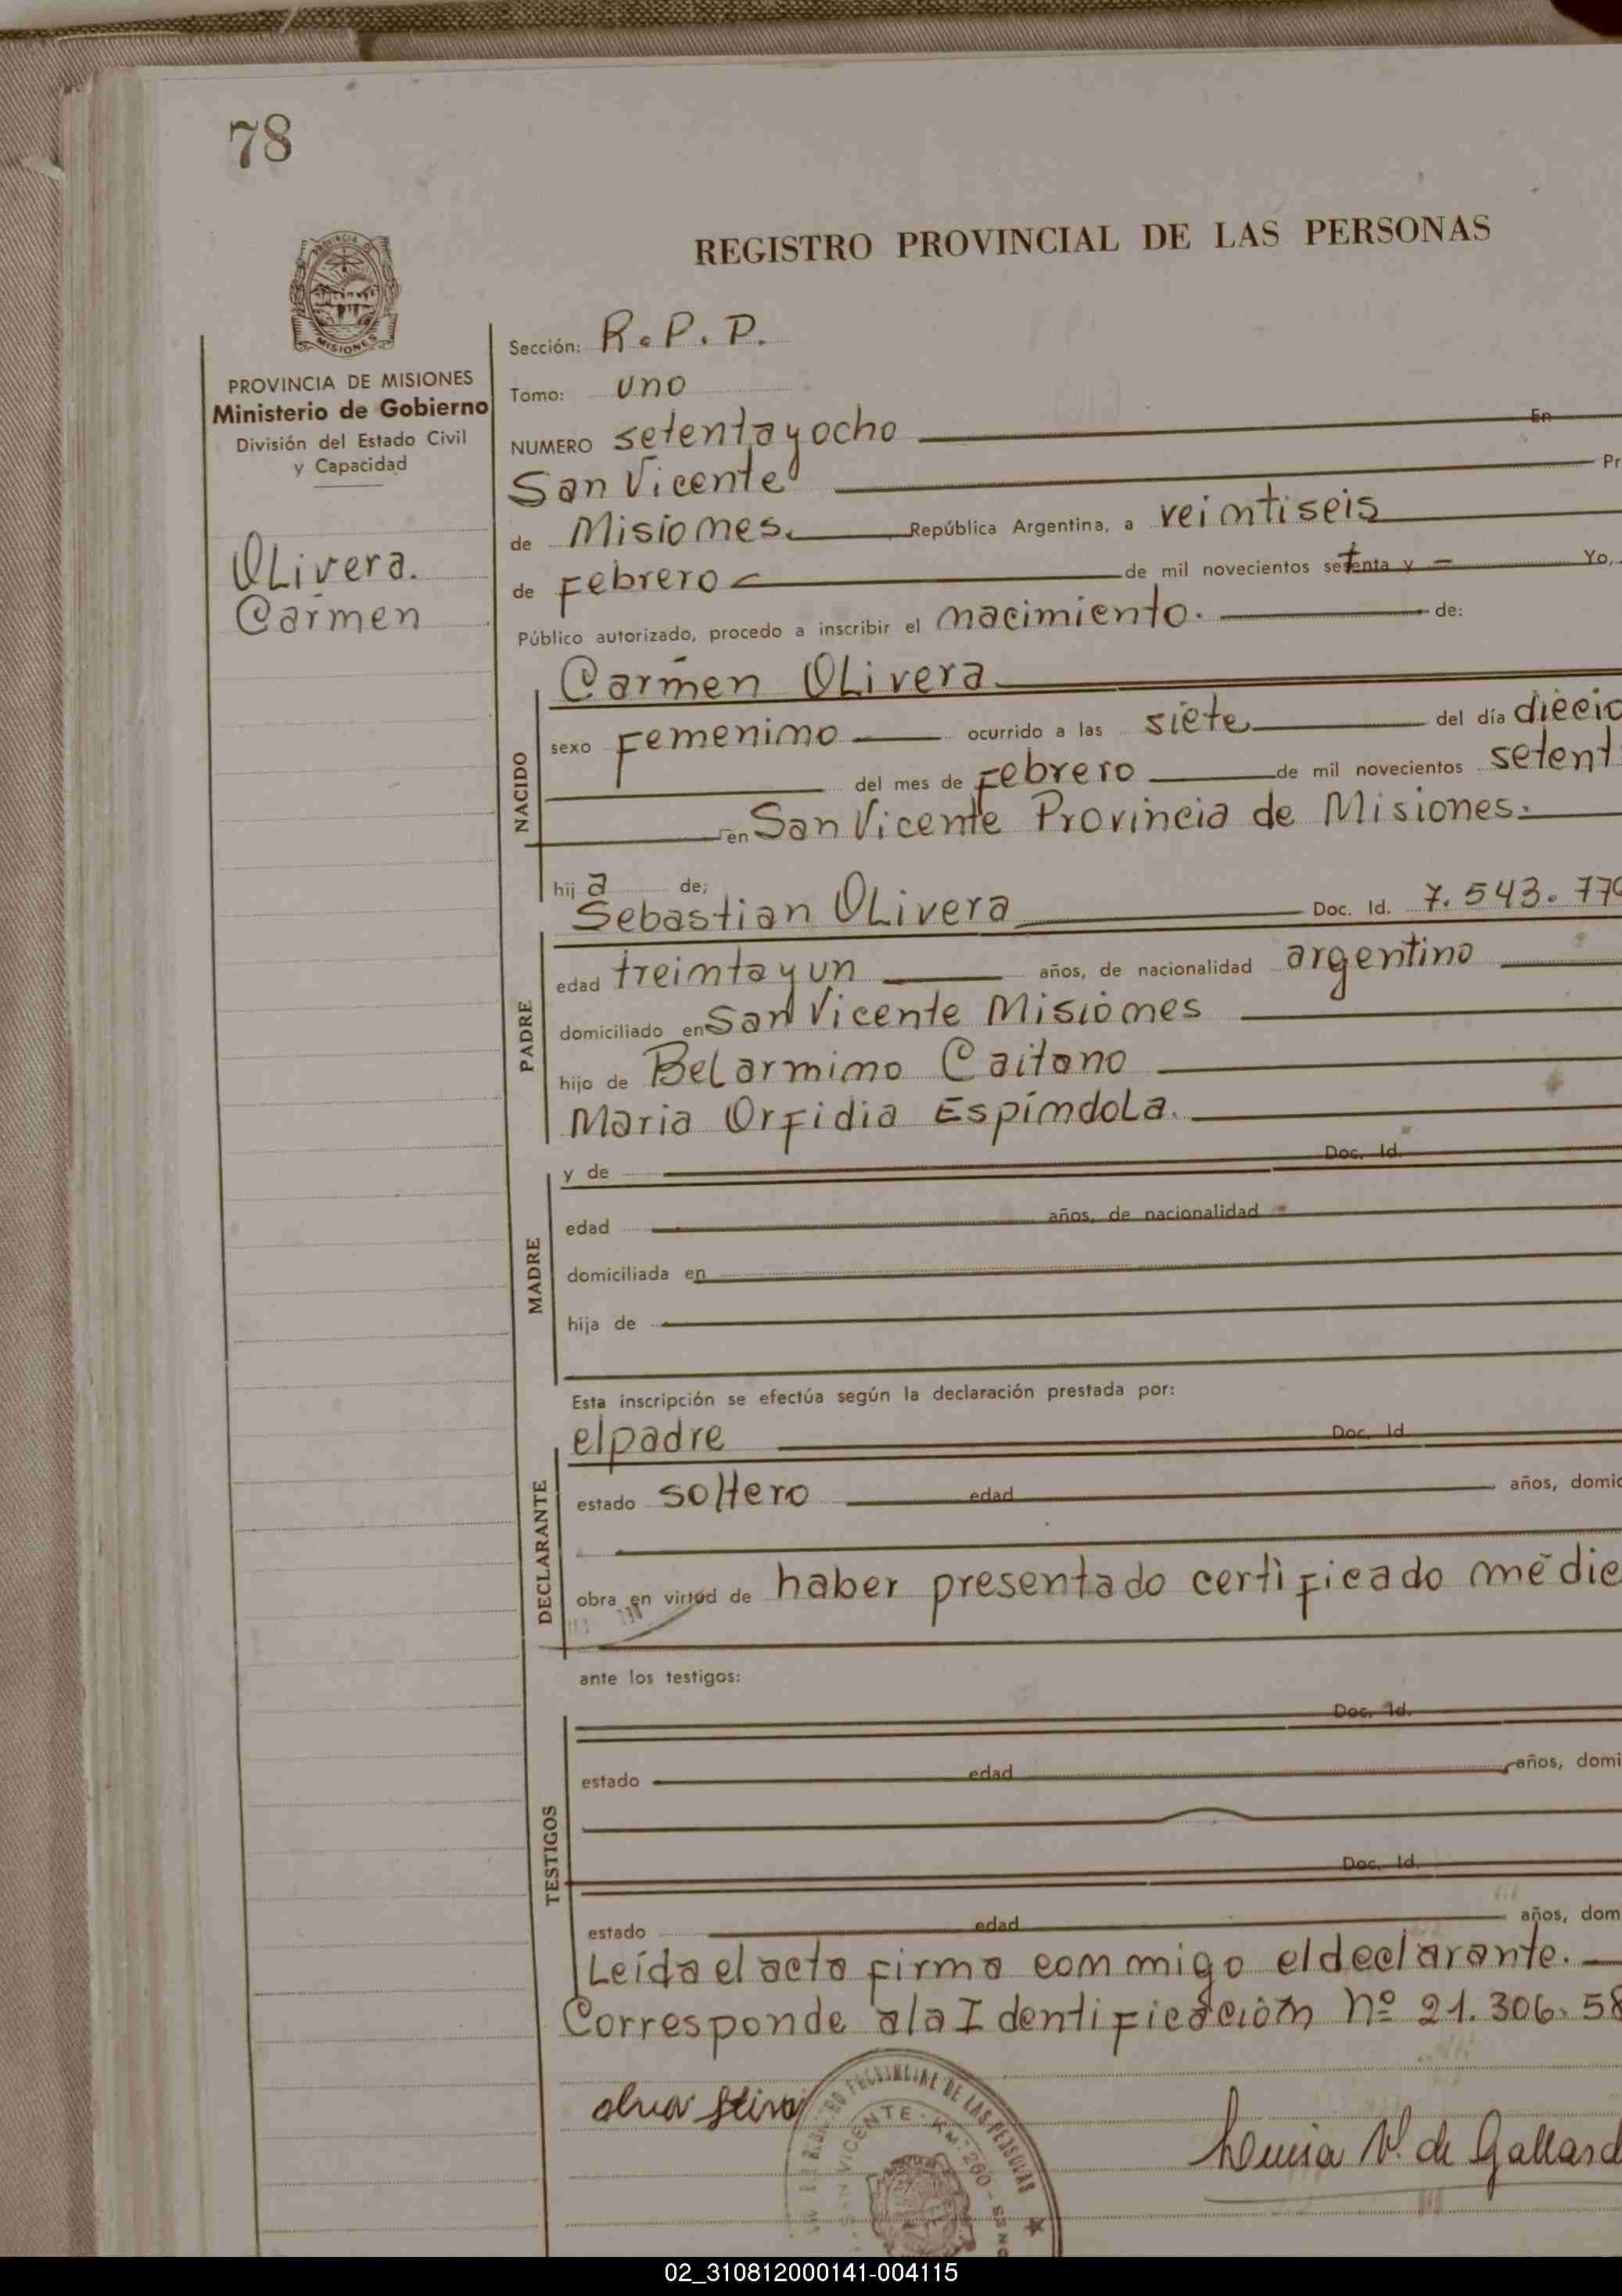 78
REGISTRO PROVINCIAL DE LAS PERSONAS
PROVINCIA DE MISIONES
Ministerio de Gobierno
División del Estado Civil
y Capacidad
OLivera.
Carmen
Sección: R.P.P.
Tomo: uno
NUMERO setenta y ocho En
San Vicente Pr
de Misiones. República Argentina, a veintiseis
de Febrero de mil novecientos setenta y — Yo,
Público autorizado, procedo a inscribir el nacimiento. de:
NACIDO
Carmen OLivera
sexo Femenino ocurrido a las siete del día diecio
del mes de Febrero de mil novecientos setent
en San Vicente Provincia de Misiones.
hija de;
PADRE
Sebastian OLivera Doc. Id. 7.543.77
edad treinta y un años, de nacionalidad argentino
domiciliado en San Vicente Misiones
hijo de BeLarmino Caitano
Maria Orfidia EspindoLa.
MADRE
y de Doc. Id.
edad años, de nacionalidad
domiciliada en
hija de
Esta inscripción se efectúa según la declaración prestada por:
DECLARANTE
el padre Doc. Id.
estado soltero edad años, domic
obra en virtud de haber presentado certificado médic
ante los testigos:
TESTIGOS
Doc. Id.
estado edad años, domi
Doc. Id.
estado edad años, dom
Leída el acta firma conmigo el declarante.
Corresponde a la Identificación nº 21.306.58
PROVINCIAL DE LAS PERSONAS
SAN VICENTE - KM. 260 -
Luisa V. de Gallard
02_310812000141-004115